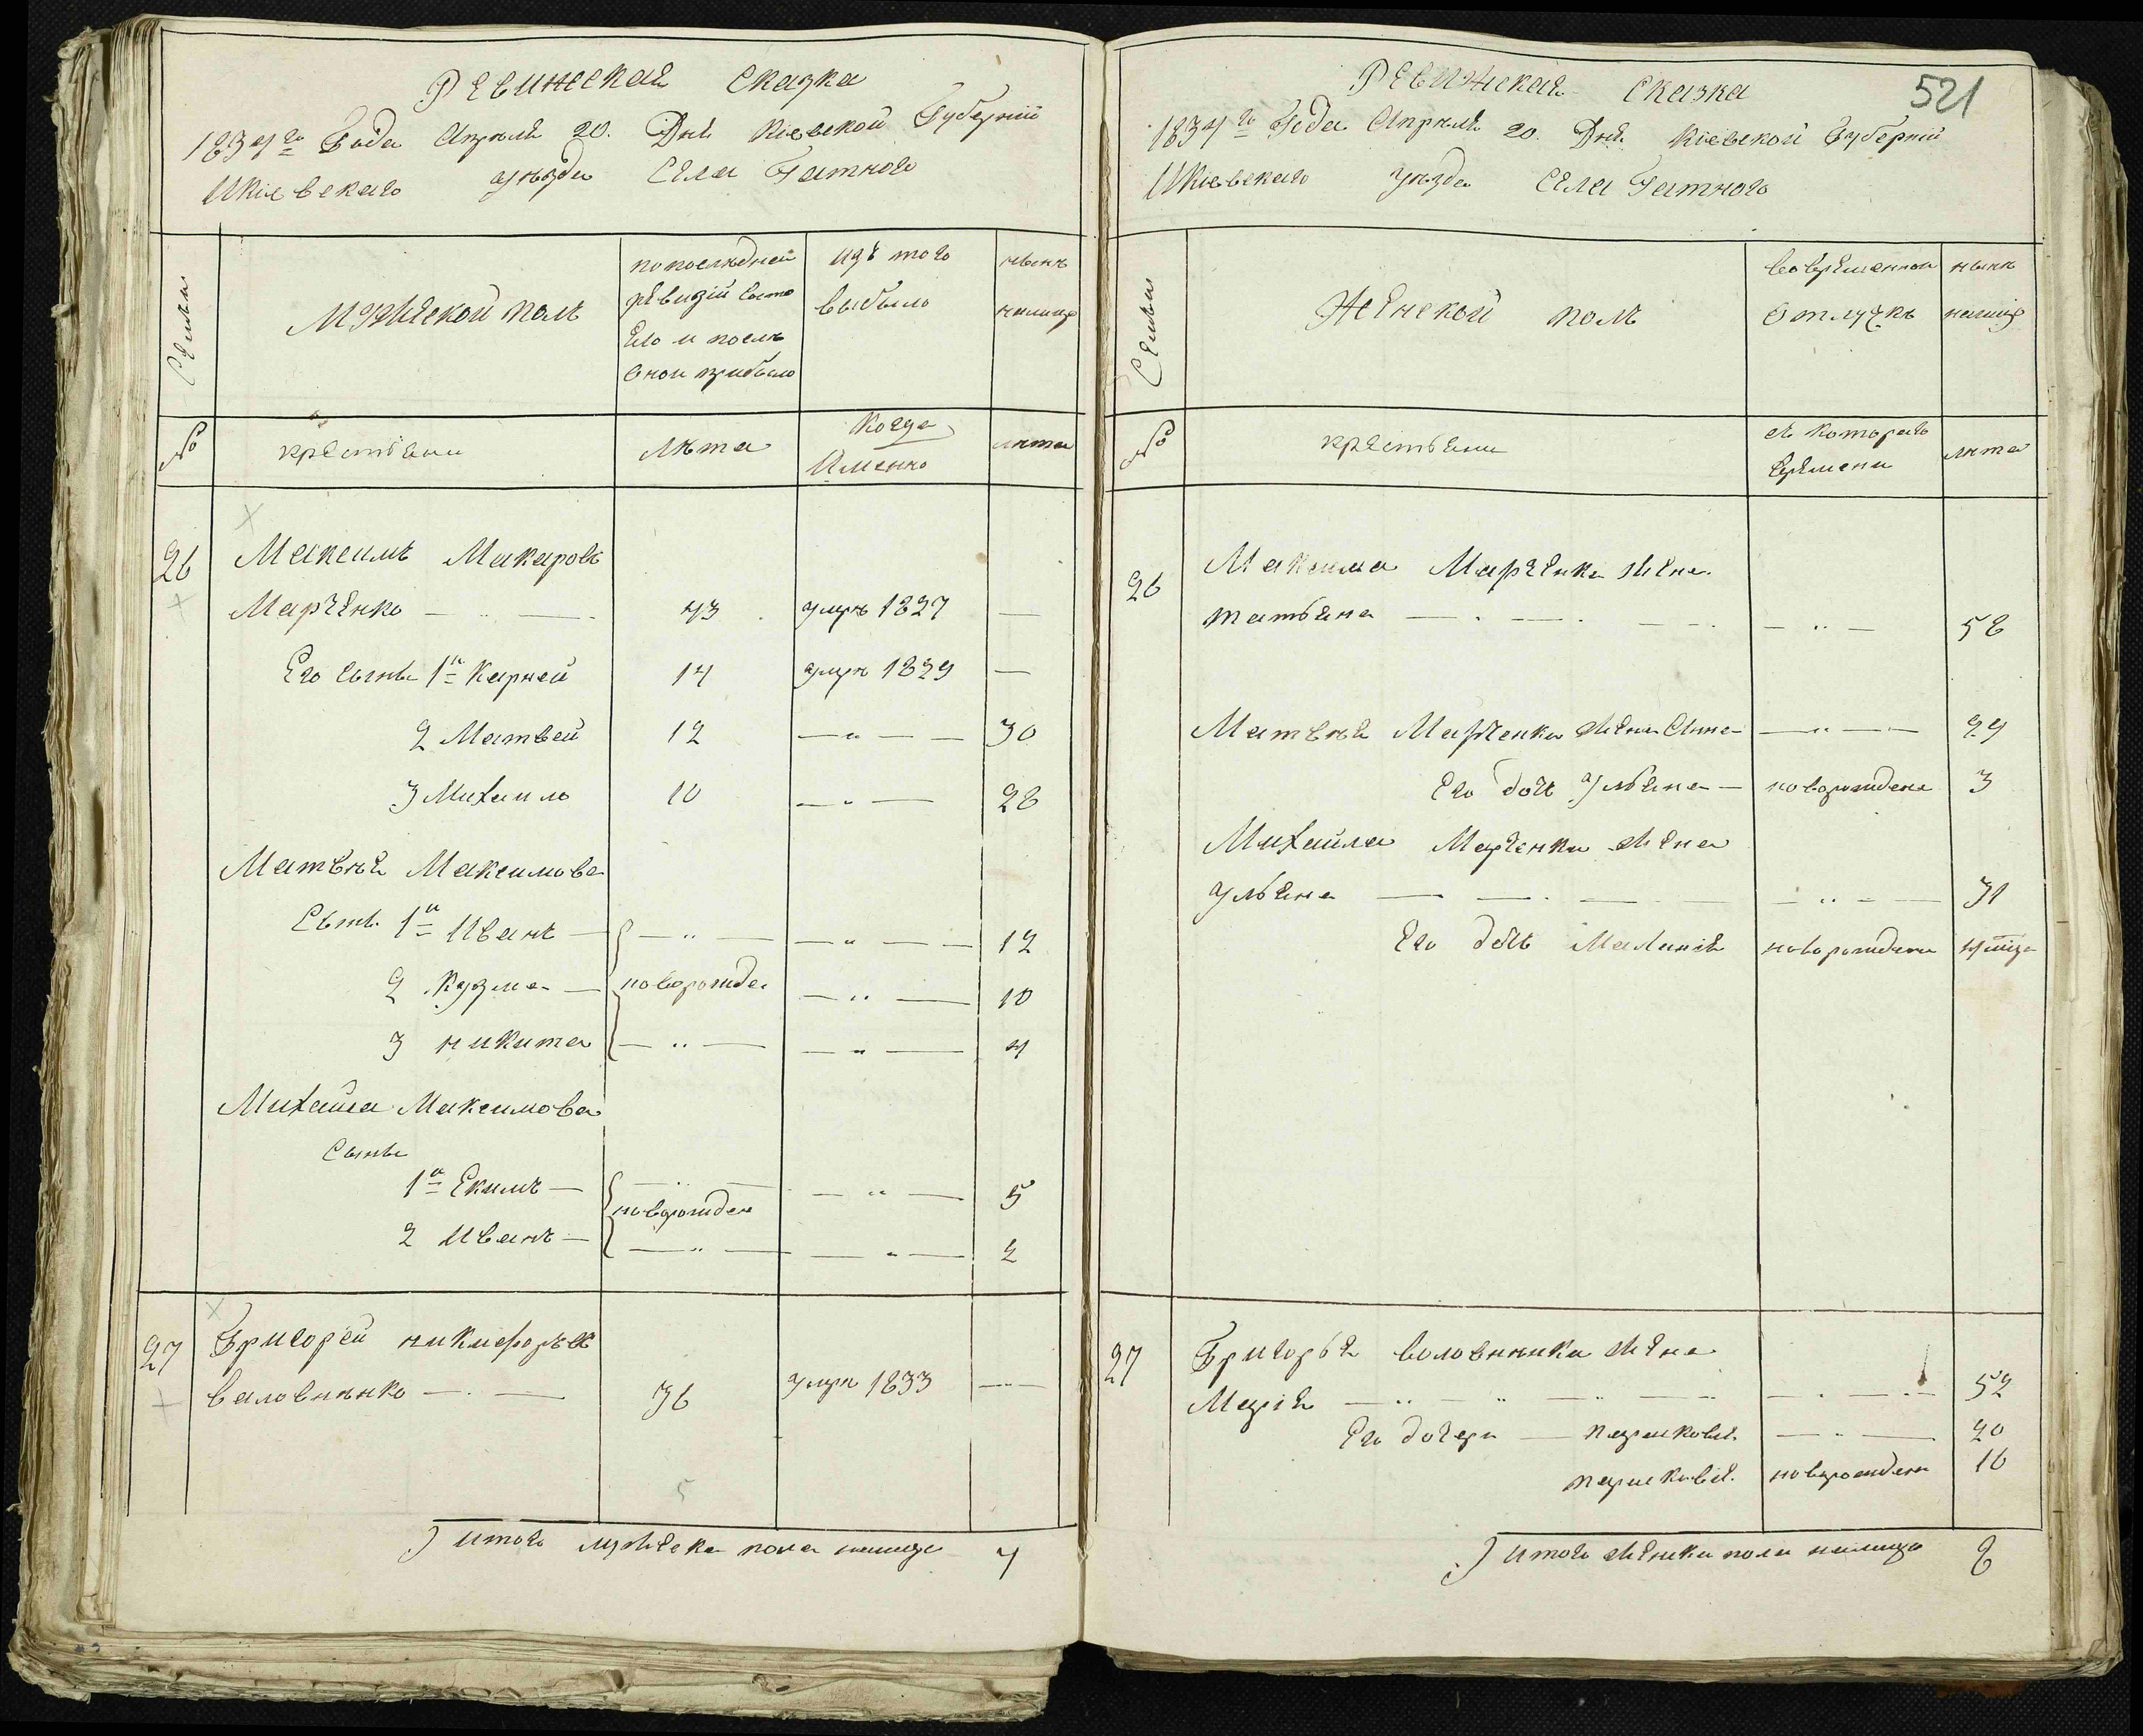 Ревижеская Сказка
1834го Года Апреля 20. Дня Кіевской Губерніи
И Кіевскаго уѣзда Села Гатного
Семьи
Мужеской полъ
по последней
ревизіи состо
яло и послѣ
оной прибыло
изъ того
выбыло
нынѣ
налицо
№
крестьяни
лѣта
Когда
Именно
лѣта
26 Максимъ Макаровъ
Марченко — 43 умре 1827 —
Его сынъ 1й Карней 14 умре 1829 —
2 Матвей 12 — " — 30
3 Михаило 10 — " — 28
Матвѣя Максимова
Сынъ 1й Иванъ — — " — — " — 12
2 Кузма — новорожде — " — 10
3 никита — " — — " — 4
Михайла Максимова
Сынъ
1й Екимъ — — " — — " — 5
новорожден
2 Иванъ — — " — — " — 2
27 Григорей никифоровъ
Воловненко — 36 умре 1833 —
5
Итого мужеска пола налицо 7
521
Ревижская Сказка
1834го Года Апреля 20. Дня Кіевской Губерніи
И Кіевскаго уѣзда Села Гатного
Семьи
Женской полъ
во временной
Отлучкѣ
нынѣ
налицо
№
крестьяни
съ котораго
времени
лѣта
26 Максима Марченка жена
татьяна — " — 58
Матвѣя Марченка жена Анна — " — 29
Его дочь Ульяна — новорождена 3
Михайла Марченка жена
Ульяна — " — 31
Его дочь Маланія новорождена
27 Григорья Воловненка жена
Марія — " — 52
Его дочери — парасковія — " — 20
парасковія новорожденн 16
Итого женска пола налицо 8